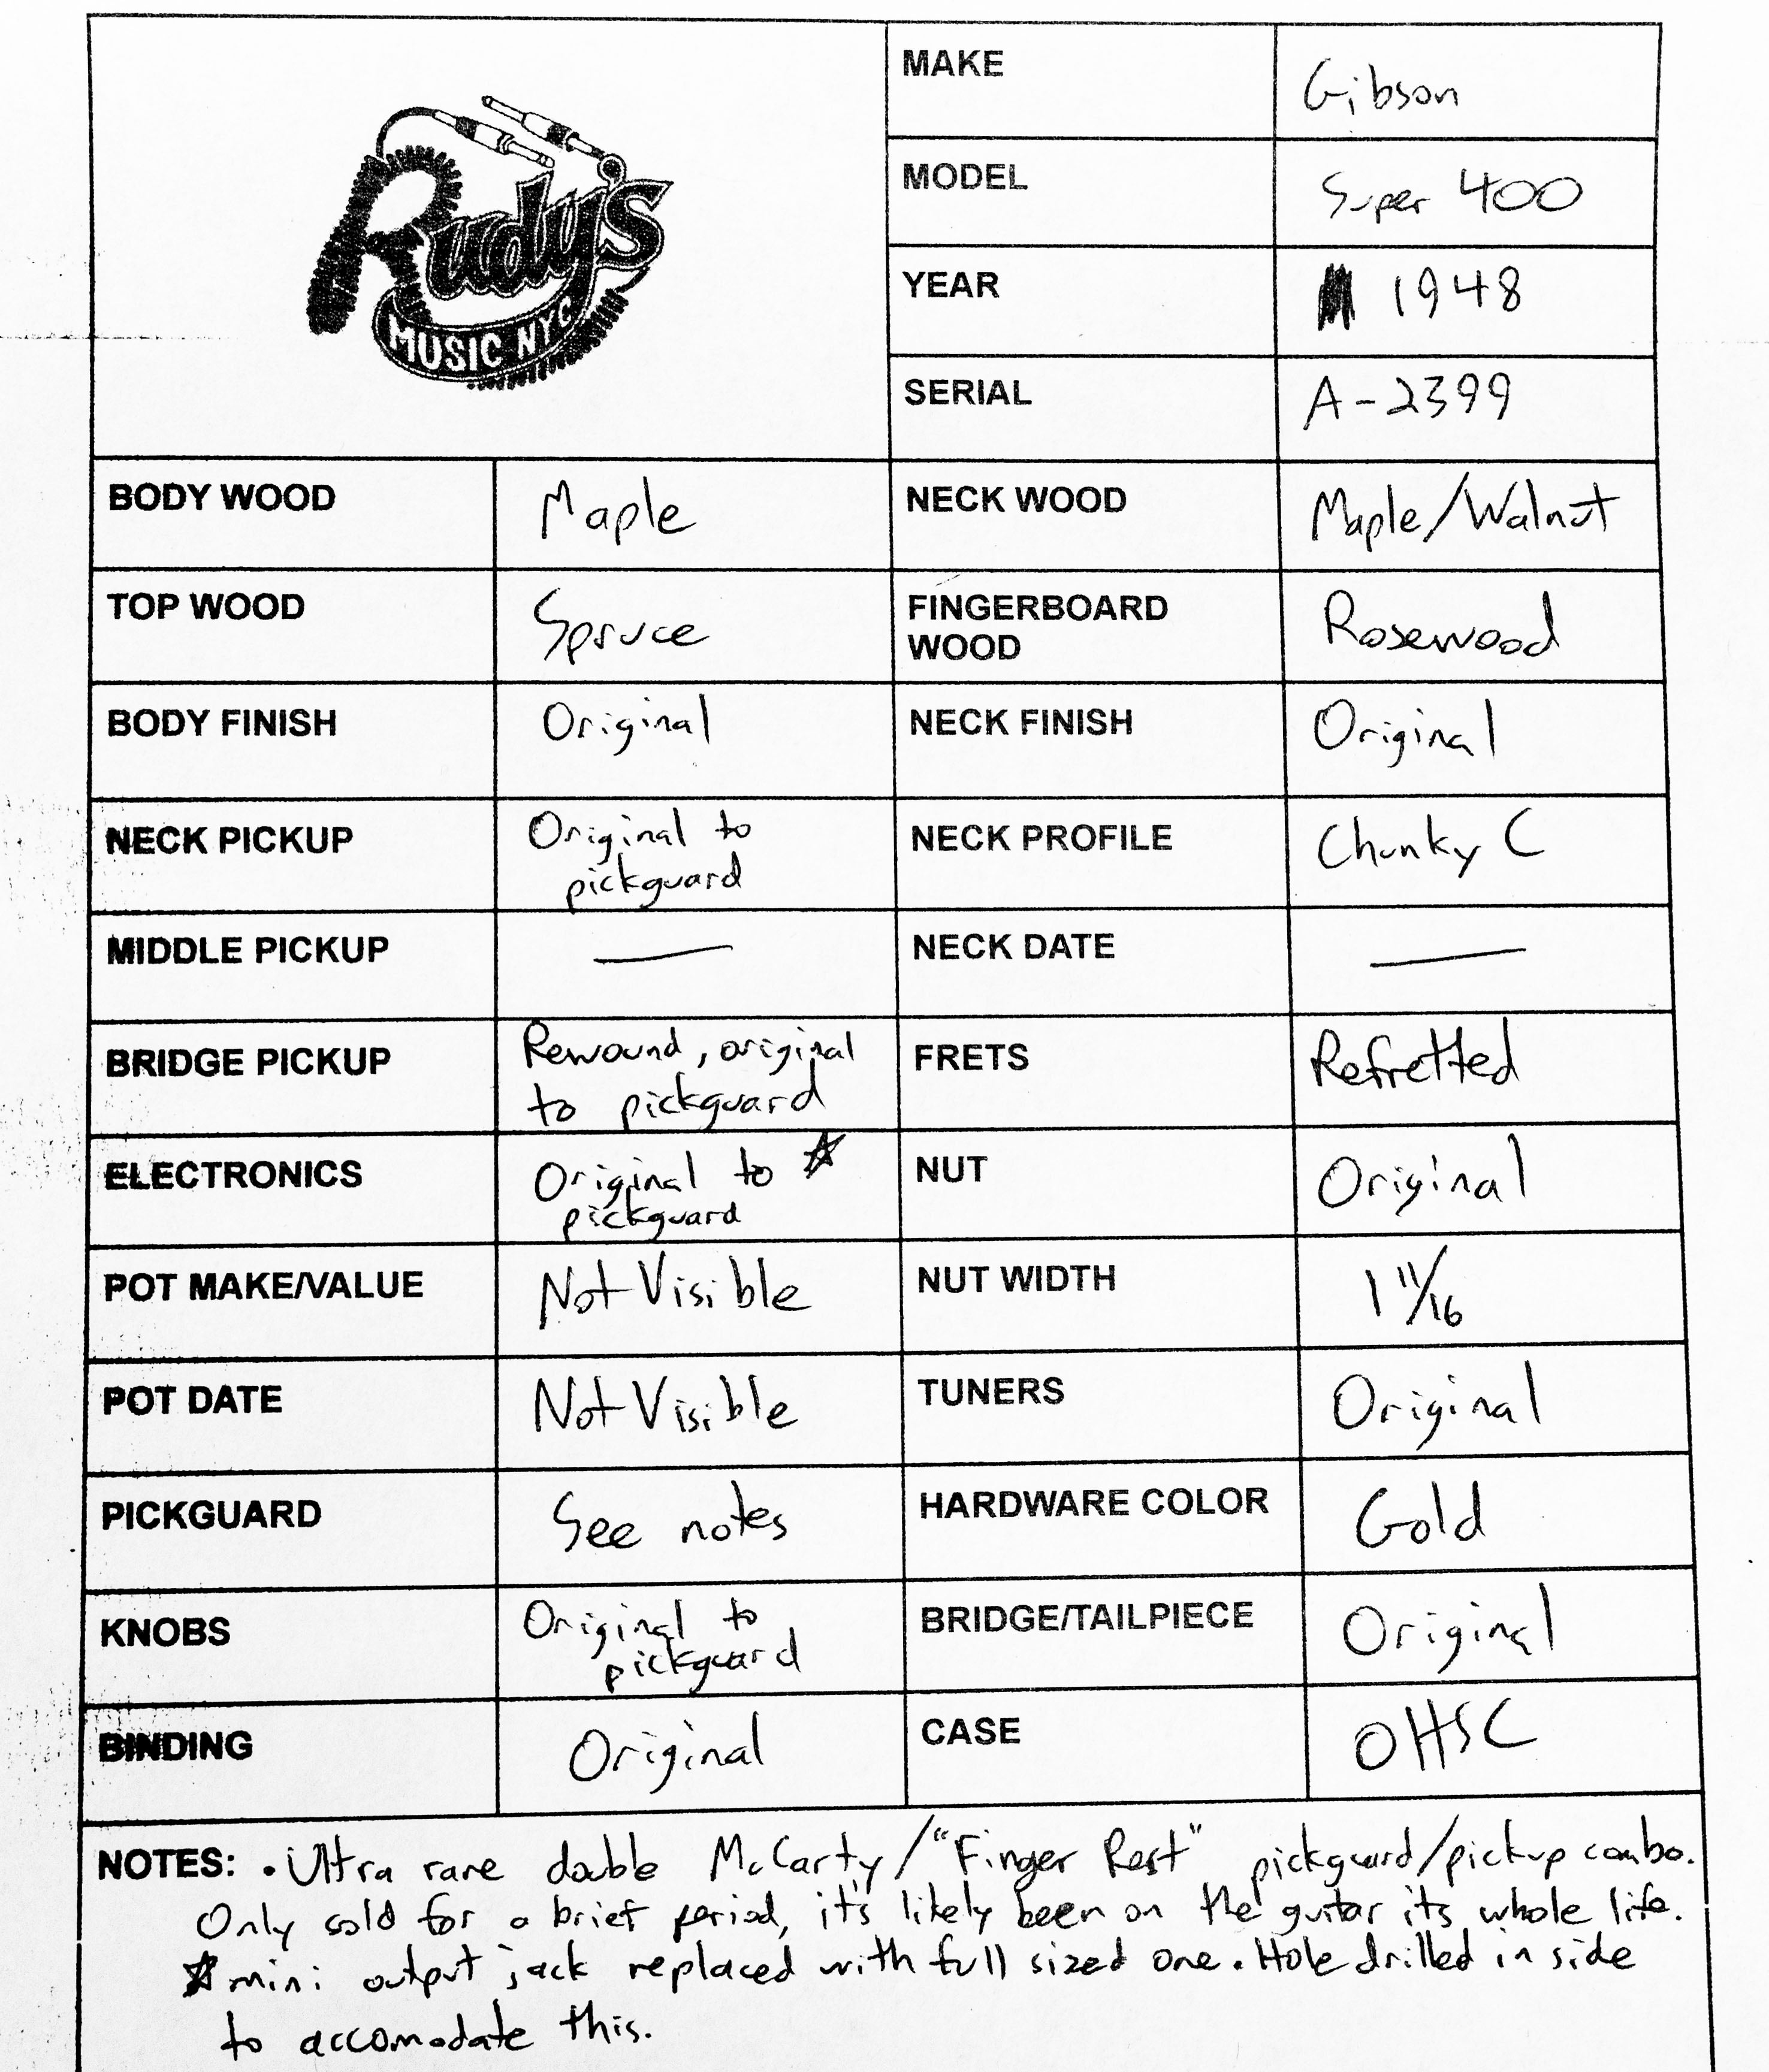 Rudy's
MUSIC NYC
MAKE
Gibson
MODEL
Super 400
YEAR
1948
SERIAL
A-2399
BODY WOOD
Maple
NECK WOOD
Maple/Walnut
TOP WOOD
Spruce
FINGERBOARD
WOOD
Rosewood
BODY FINISH
Original
NECK FINISH
Original
NECK PICKUP
Original to
pickguard
NECK PROFILE
Chunky C
MIDDLE PICKUP
—
NECK DATE
—
BRIDGE PICKUP
Rewound, original
to pickguard
FRETS
Refretted
ELECTRONICS
Original to ☆
pickguard
NUT
Original
POT MAKE/VALUE
Not Visible
NUT WIDTH
1 11/16
POT DATE
Not Visible
TUNERS
Original
PICKGUARD
See notes
HARDWARE COLOR
Gold
KNOBS
Original to
pickguard
BRIDGE/TAILPIECE
Original
BINDING
Original
CASE
OHSC
NOTES: • Ultra rare double McCarty/"Finger Rest" pickguard/pickup combo.
Only sold for a brief period, it's likely been on the guitar its whole life.
☆ mini output jack replaced with full sized one. Hole drilled in side
to accomodate this.